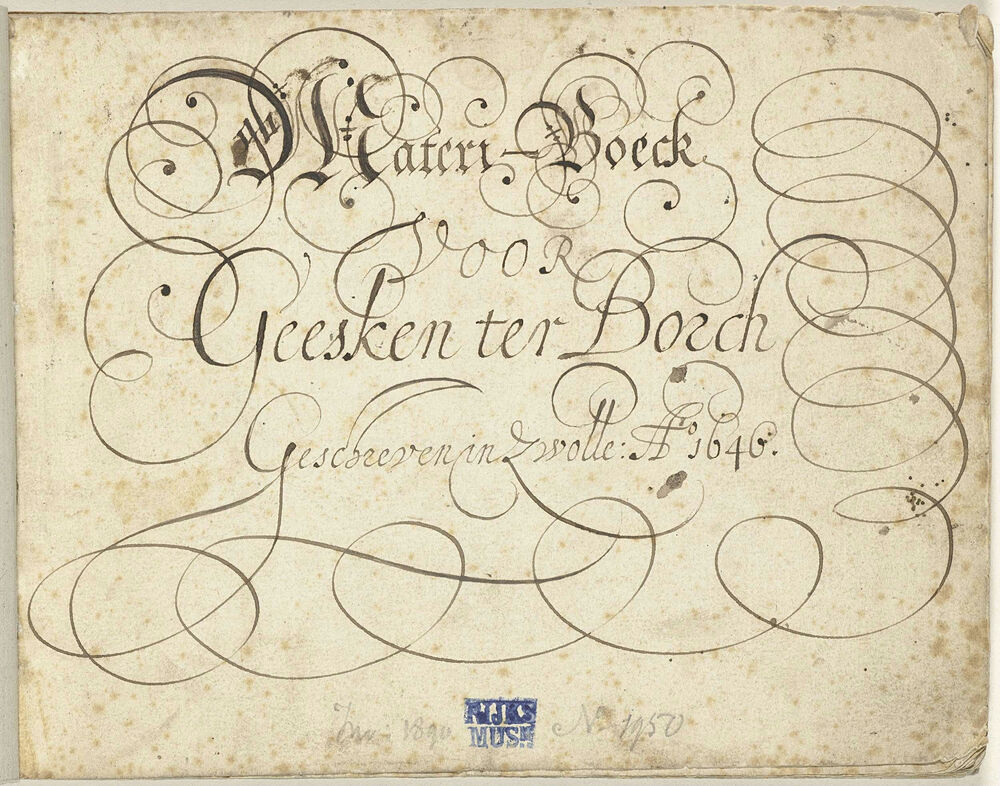 Materi-Boeck
VOOR
Geesken ter Borch
Geschreven in Zwolle: Aº 1646.
RIJKS
MUSM
Inv. 1890 Nº 1950